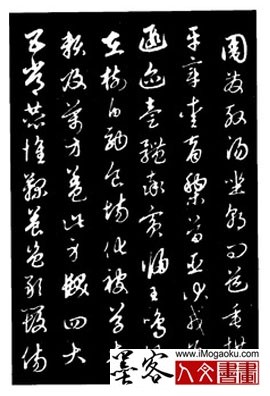 周發殷湯坐朝問道垂拱
平章愛育黎首臣伏戎羌
遐邇壹體率賓歸王鳴鳳
在樹白駒食場化被草木
賴及萬方蓋此身髮四大
五常恭惟鞠養豈敢毀傷
墨客
www.iMogaoku.com
人文書畫